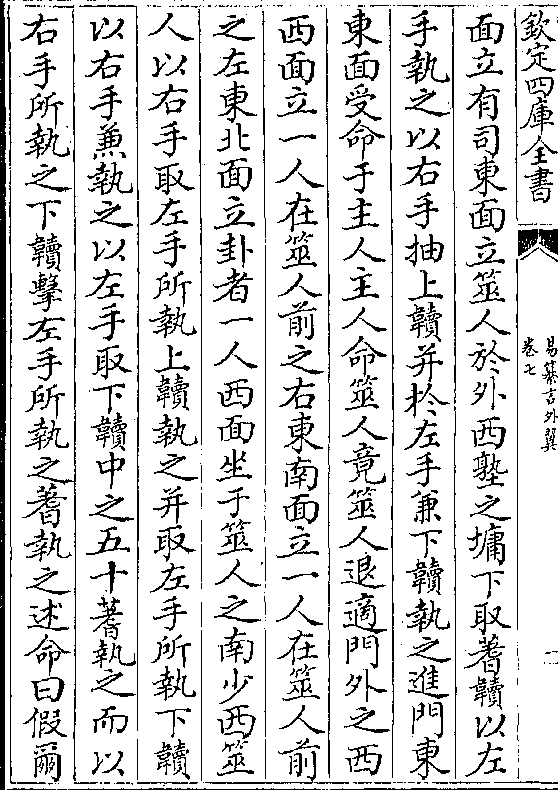 欽定四庫全書
易纂言外翼
卷七
一
面立有司東面立筮人於外西塾之墉下取蓍韇以左
手執之以右手抽上韇并於左手兼下韇執之進門東
東面受命于主人主人命筮人竟筮人退適門外之西
西面立一人在筮人前之右東南面立一人在筮人前
之左東北面立卦者一人西面坐于筮人之南少西筮
人以右手取左手所執上韇執之并取左手所執下韇
以右手兼執之以左手取下韇中之五十蓍執之而以
右手所執之下韇擊左手所執之蓍執之述命曰假爾